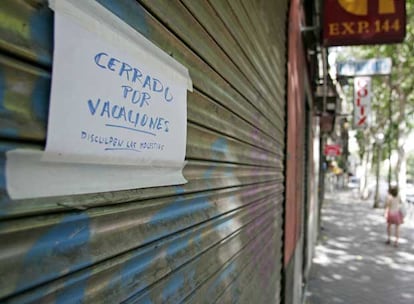 CERRADO
POR
VACACIONES
DISCULPEN LAS MOLESTIAS
EXP. 144